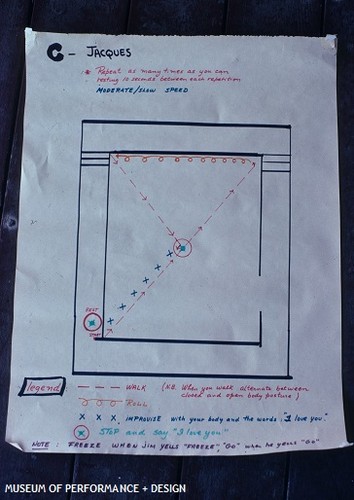 C - JACQUES
* Repeat as many times as you can
resting 10 seconds between each repetition
MODERATE/SLOW SPEED
REST
START
legend
WALK (N.B. When you walk alternate between
closed and open body posture)
ROLL
X X X IMPROVISE with your body and the words: "I love you."
STOP and say "I love you."
NOTE: FREEZE WHEN JIM YELLS "FREEZE", "GO" when he yells "GO"
MUSEUM OF PERFORMANCE + DESIGN